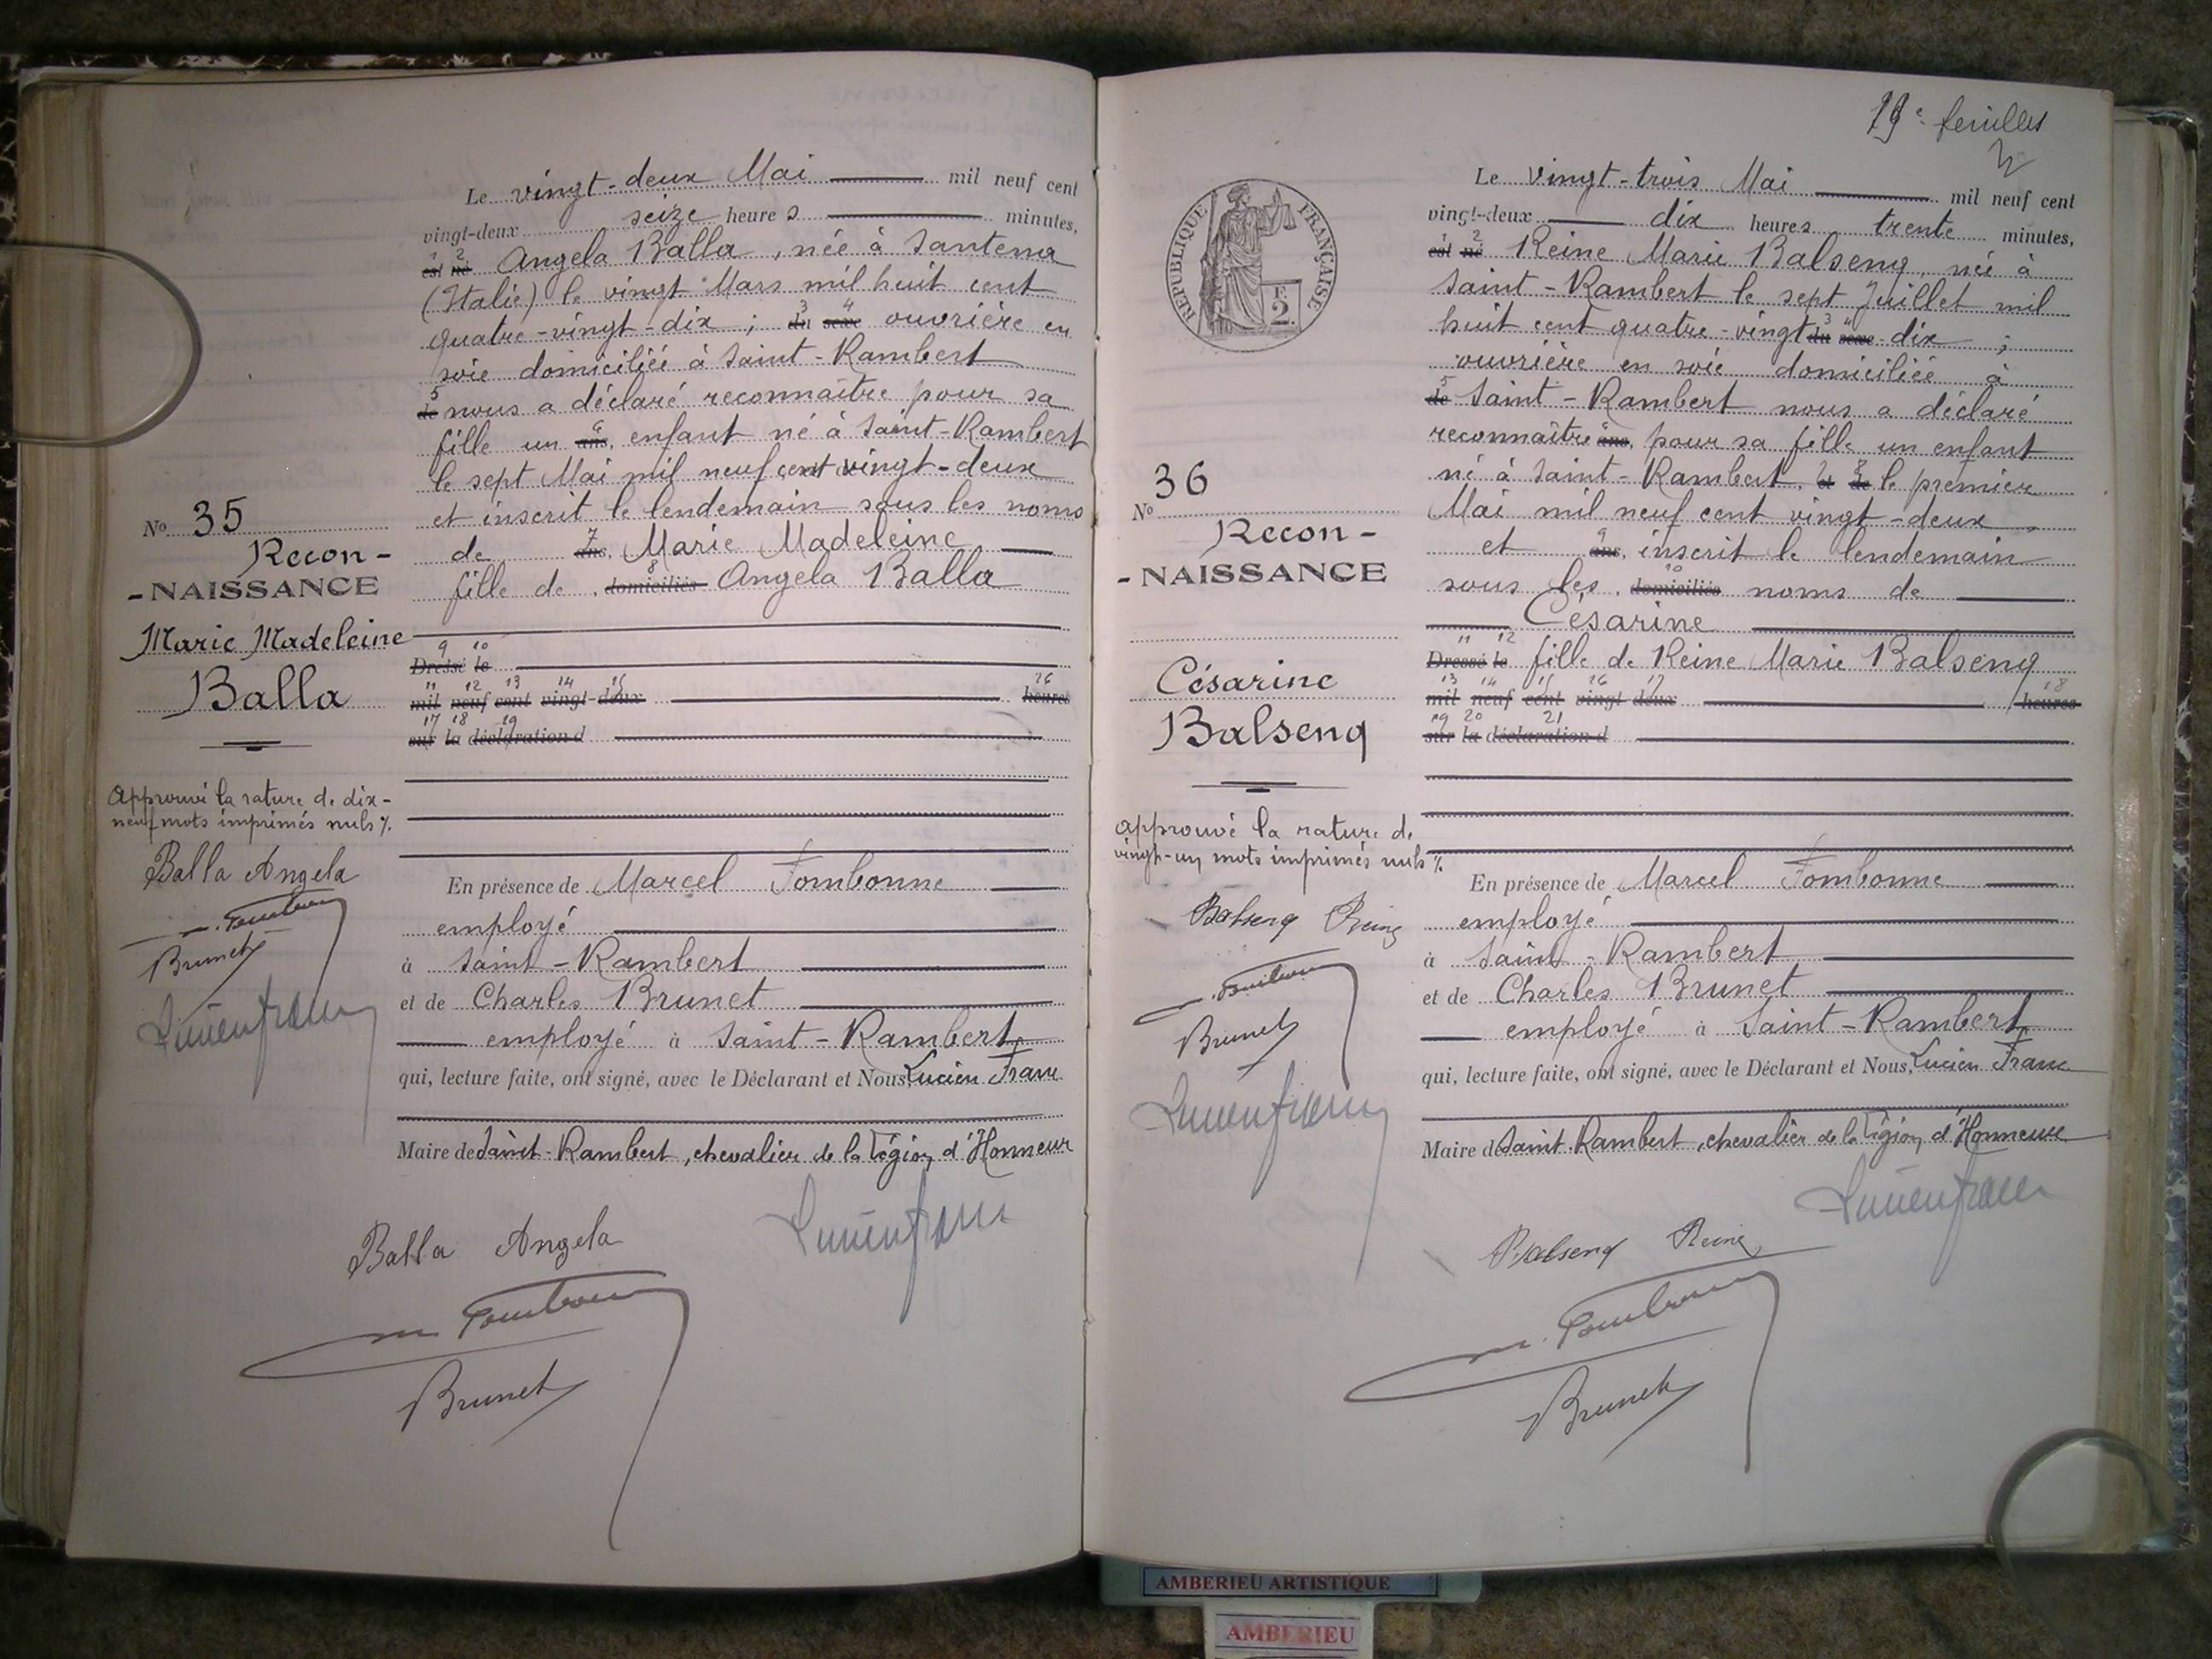 Le vingt-deux Mai mil neuf cent
vingt-deux seize heures minutes,
1 2
est né Angela Balla, née à Santena
(Italie) le vingt Mars mil huit cent
3 4
quatre-vingt-dix ; du sexe ouvrière en
soie domiciliée à Saint-Rambert
5
de nous a déclaré reconnaître pour sa
6
fille un ans, enfant né à Saint-Rambert
le sept Mai mil neuf cent vingt-deux
et inscrit le lendemain sous les noms
7
de ans, Marie Madeleine
8
fille de , domiciliés Angela Balla
9 10
Dressé le
11 12 13 14 15 16
mil neuf cent vingt-deux heures
17 18 19
sur la déclaration d
No 35
Recon-
-NAISSANCE
Marie Madeleine
Balla
Approuvé la rature de dix-
neuf mots imprimés nuls %.
Balla Angela
Brunet
Lucien Franc
En présence de Marcel Fombonne
employé
à Saint-Rambert
et de Charles Brunet
employé à Saint-Rambert
qui, lecture faite, ont signé, avec le Déclarant et Nous, Lucien Franc
Maire de Saint-Rambert, chevalier de la Légion d'Honneur
Balla Angela
Lucien Franc
m. Fombonne
Brunet
19e feuillet
RÉPUBLIQUE FRANÇAISE
F.
2.
Le vingt-trois Mai mil neuf cent
vingt-deux dix heures trente minutes,
1 2
est né Reine Marie Balseng, née à
Saint-Rambert le sept Juillet mil
3 4
huit cent quatre-vingt du sexe dix ;
ouvrière en soie domiciliée à
5
de Saint-Rambert nous a déclaré
reconnaître ans, pour sa fille un enfant
7 8
né à Saint-Rambert, et de le premier
Mai mil neuf cent vingt-deux
9
et ans, inscrit le lendemain
10
sous les , domiciliés noms de
Césarine
11 12
Dressé le fille de Reine Marie Balseng
13 14 15 16 17 18
mil neuf cent vingt deux heures
19 20 21
sur la déclaration d
No 36
Recon-
-NAISSANCE
Césarine
Balseng
approuvé la rature de
vingt-un mots imprimés nuls %.
Balseng Reine
Brunet
Lucien Franc
En présence de Marcel Fombonne
employé
à Saint-Rambert
et de Charles Brunet
employé à Saint-Rambert
qui, lecture faite, ont signé, avec le Déclarant et Nous, Lucien Franc
Maire de Saint-Rambert, chevalier de la Légion d'Honneur
Lucien Franc
Balseng Reine
m. Fombonne
Brunet
AMBERIEU ARTISTIQUE
AMBERIEU